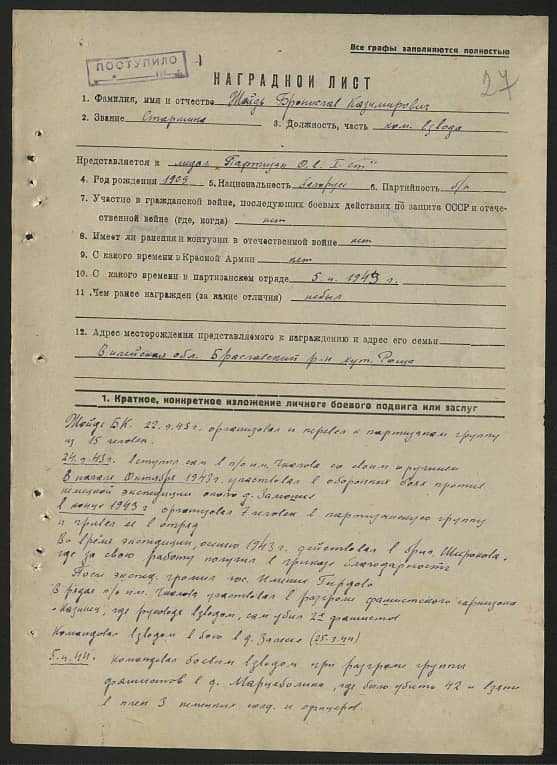 Все графы заполняются полностью
ПОСТУПИЛО
27
НАГРАДНОЙ ЛИСТ
1. Фамилия, имя и отчество Жойдь Бронислав Казимирович
2. Звание Старшина 3. Должность, часть ком. взвода
Представляется к медал "Партизан О.в. I ст"
4. Год рождения 1909 5. Национальность белорус 6. Партийность б/п
7. Участие в гражданской войне, последующих боевых действиях по защите СССР и отече-
ственной войне (где, когда) нет
8. Имеет ли ранения и контузии в отечественной войне нет
9. С какого времени в Красной Армии нет
10. С какого времени в партизанском отряде 1943 г.
11. Чем ранее награжден (за какие отличия) небыл
12. Адрес месторождения представляемого к награждению и адрес его семьи
Вилейская обл. Браславский р-н хут. Роща
1. Краткое, конкретное изложение личного боевого подвига или заслуг
Жойдь Б.К. 22.9.43 г. организовал и перевел к партизанам группу
из 15 человек.
24.9.43 г. вступил сам в п/о им. Чкалова со своим оружием
В начале Октября 1943 г. участвовал в оборонных боях против
немецкой экспедиции около д.
в конце 1943 г организовал 7 человек в партизанскую группу
и привел ее в отряд
Во время экспедиции, осенью 1943 г. действовал в бриг. Широкова.
где за свою работу получил в приказе благодарность
После экспед. громил гос. имение
В рядах п/о им. Чкалова участвовал в разгроме фашистского гарнизона
Казинец, где руководя взводом, сам убил 2х фашистов
Командовал взводом в бою в д.
командовал боевым взводом при разгроме группы
фашистов в д. где было убито 42 и взято
в плен 3 немецких солд. и офицеров.